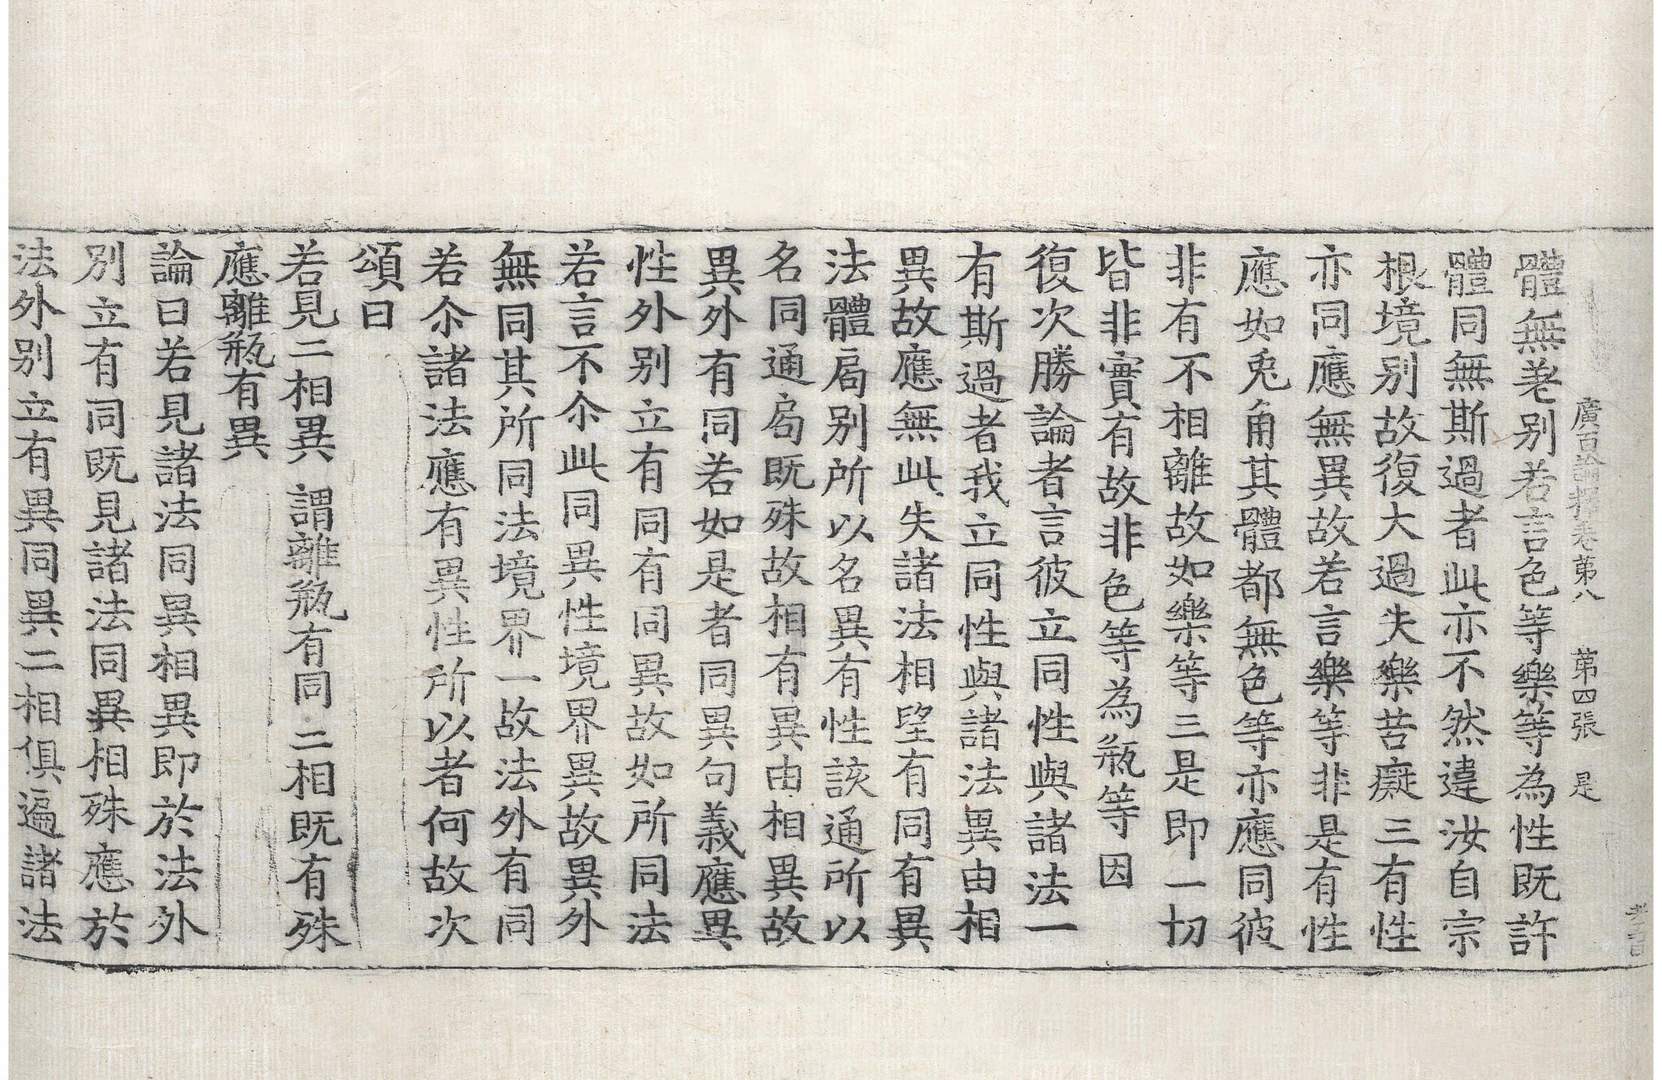 廣百論釋卷第八　第四張　是
體無差别若言色等樂等為性既許
體同無斯過者此亦不然違汝自宗
根境别故復大過失樂苦癡三有性
亦同應無異故若言樂等非是有性
應如兎角其體都無色等亦應同彼
非有不相離故如樂等三是即一切
皆非實有故非色等為瓶等因
復次勝論者言彼立同性與諸法一
有斯過者我立同性與諸法異由相
異故應無此失諸法相望有同有異
法體局别所以名異有性該通所以
名同通局既殊故相有異由相異故
異外有同若如是者同異句義應異
性外别立有同有同異故如所同法
若言不尒此同異性境界異故異外
無同其所同法境界一故法外有同
若尒諸法應有異性所以者何故次
頌曰
若見二相異　謂離瓶有同　二相既有殊
應離瓶有異
論曰若見諸法同異相異即於法外
別立有同既見諸法同異相殊應於
法外别立有異同異二相俱遍諸法